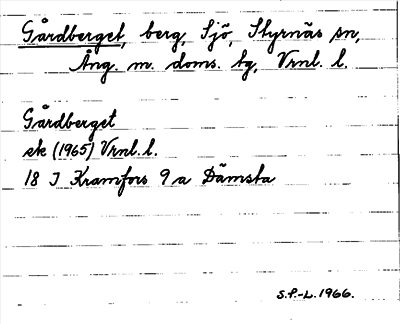 Gårdberget, berg, Sjö, Styrnäs sn,
Ång. m. doms. tg, Vrnl. l.
Gårdberget
ek (1965) Vrnl. l.
18 I Kramfors 9 a Dämsta
S.P.-L. 1966.